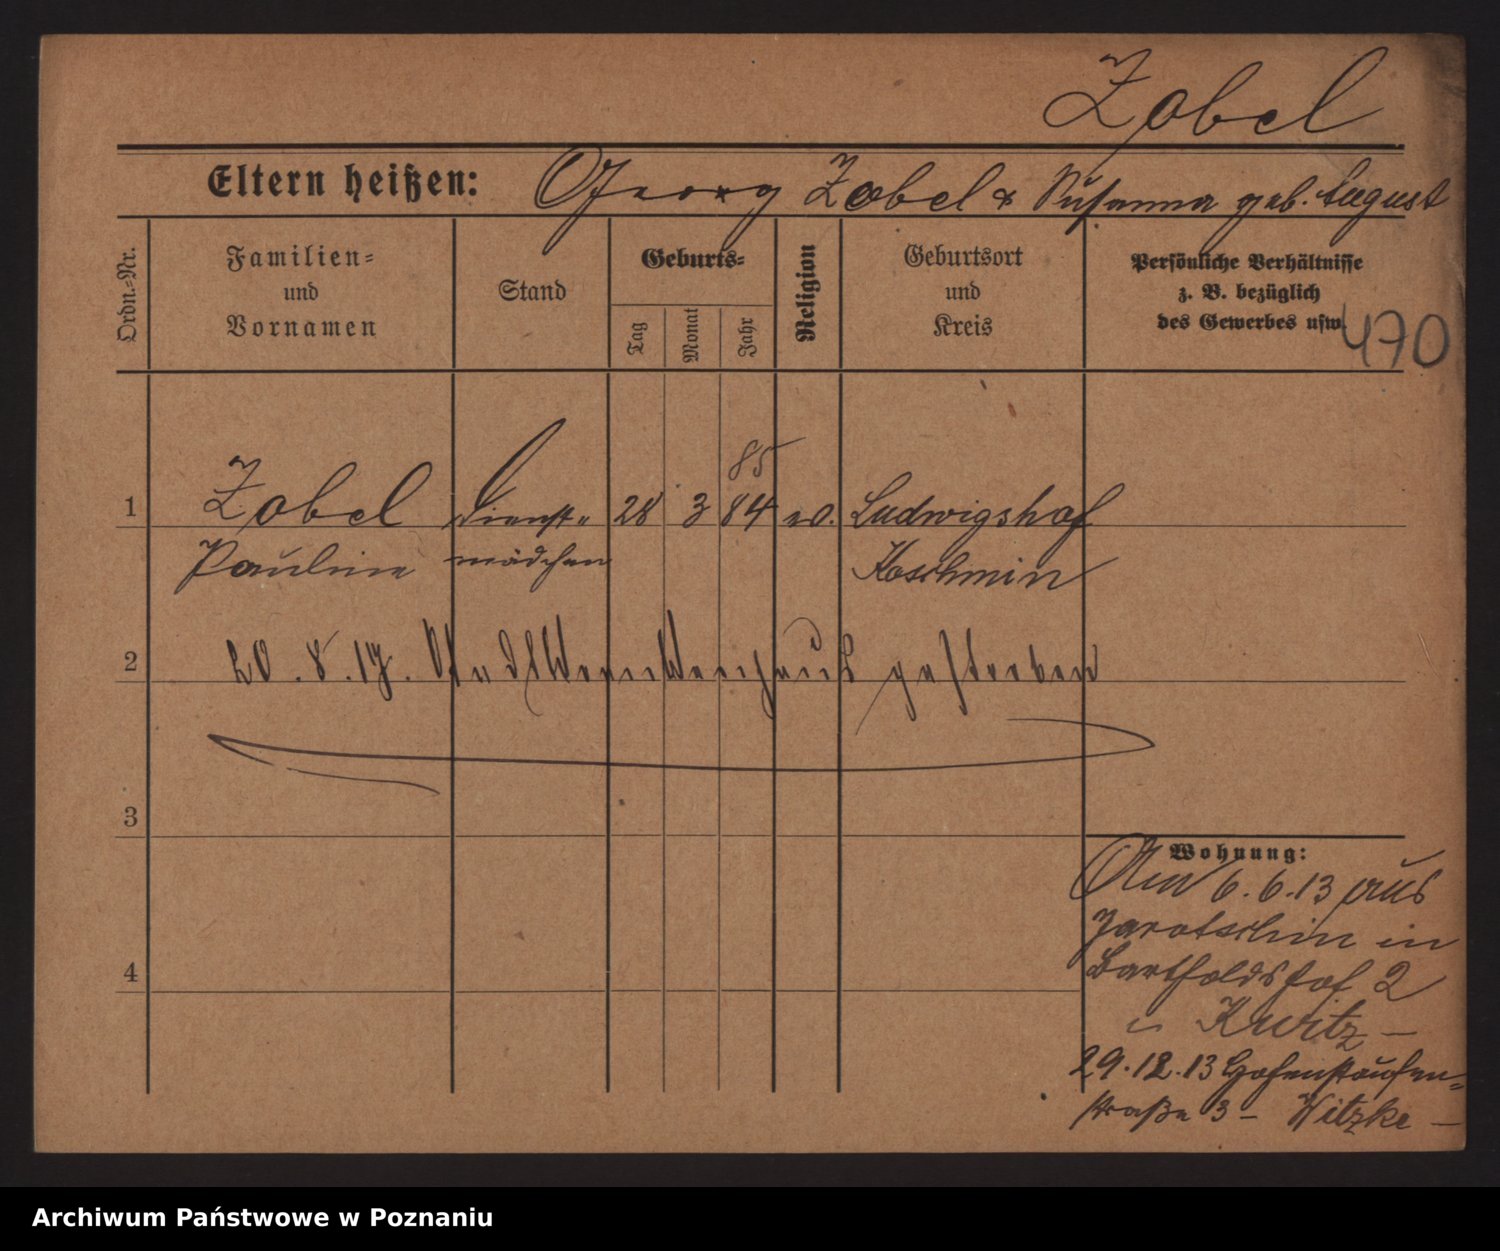 Zobel
Eltern heißen: Georg Zobel & Susanna geb. August
Ordn.-Nr.
Familien-
und
Vornamen
Stand
Geburts-
Tag
Monat
Jahr
Religion
Geburtsort
und
Kreis
Persönliche Verhältnisse
z. B. bezüglich
des Gewerbes usw.
470
85
1 Zobel Dienst- 28 3 84 ev. Ludwigshof
Pauline mädchen Koschmin
2 20.8.17. gestorben
3
Wohnung:
Am 6.6.13 aus
Jarotschin in
Bartholdshof 2
4
29.12.13 Hohenstaufen-
straße 3 – Witzke –
Archiwum Państwowe w Poznaniu